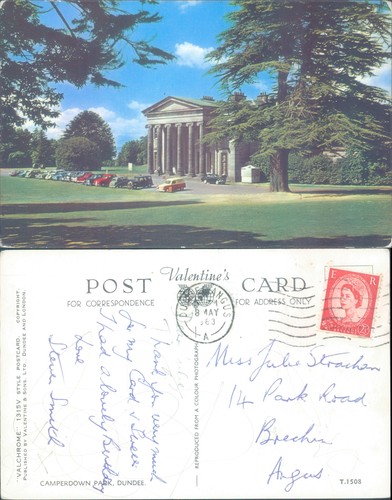 POST Valentine's CARD
FOR CORRESPONDENCE
FOR ADDRESS ONLY
E R
ANGUS
MAY
A
Thank you very much
for my Card & Tissues
I had a lovely Birthday
Love
Steve Smith
Miss Julie Strachan
14 Park Road
Brechin
Angus
"VALCHROME" 1315V STYLE POSTCARD. COPYRIGHT.
PUBLISHED BY VALENTINE & SONS, LTD., DUNDEE AND LONDON.
REPRODUCED FROM A COLOUR PHOTOGRAPH
CAMPERDOWN PARK, DUNDEE.
T.1508